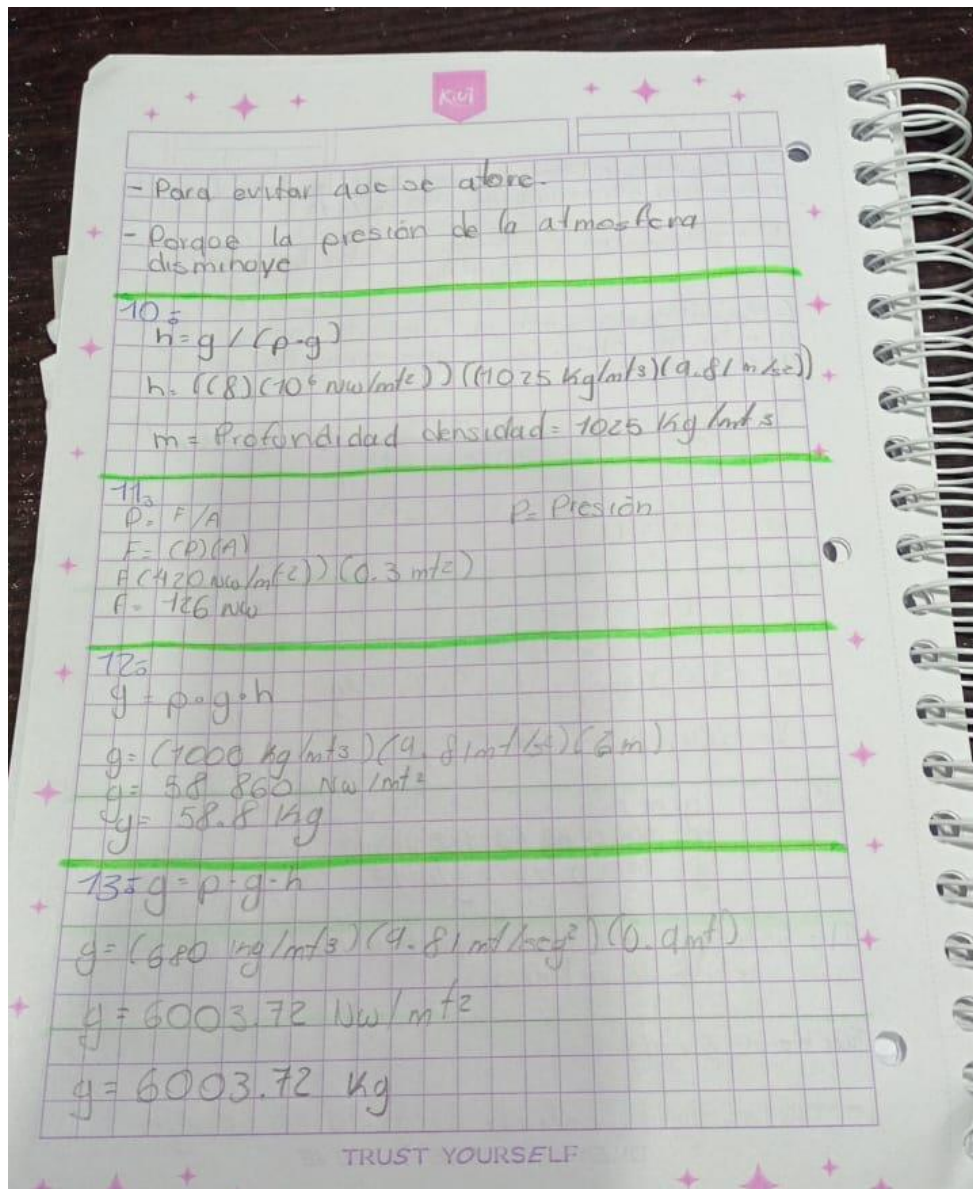 Kiwi
- Para evitar que se atore.
- Porque la presión de la atmosfera
disminuye
10-
h=g/(p·g)
h=((8)(10⁶ Nw/mt²))((1025 Kg/mt3)(9.81m/s2))
m= Profundidad densidad= 1025 Kg/mt3
11-
P= F/A P= Presión
F= (P)(A)
F(420 Nw/mt2))(0.3 mt2)
F= 126 Nw
12-
g = p·g·h
g= (1000 kg/mt3)(9.81mt/s2)(6m)
g= 58 860 Nw/mt²
g= 58.8 Kg
13- g= p·g·h
g=(680 kg/mt3)(9.81mt/seg²)(0.9mt)
g= 6003.72 Nw/mt2
g= 6003.72 Kg
TRUST YOURSELF